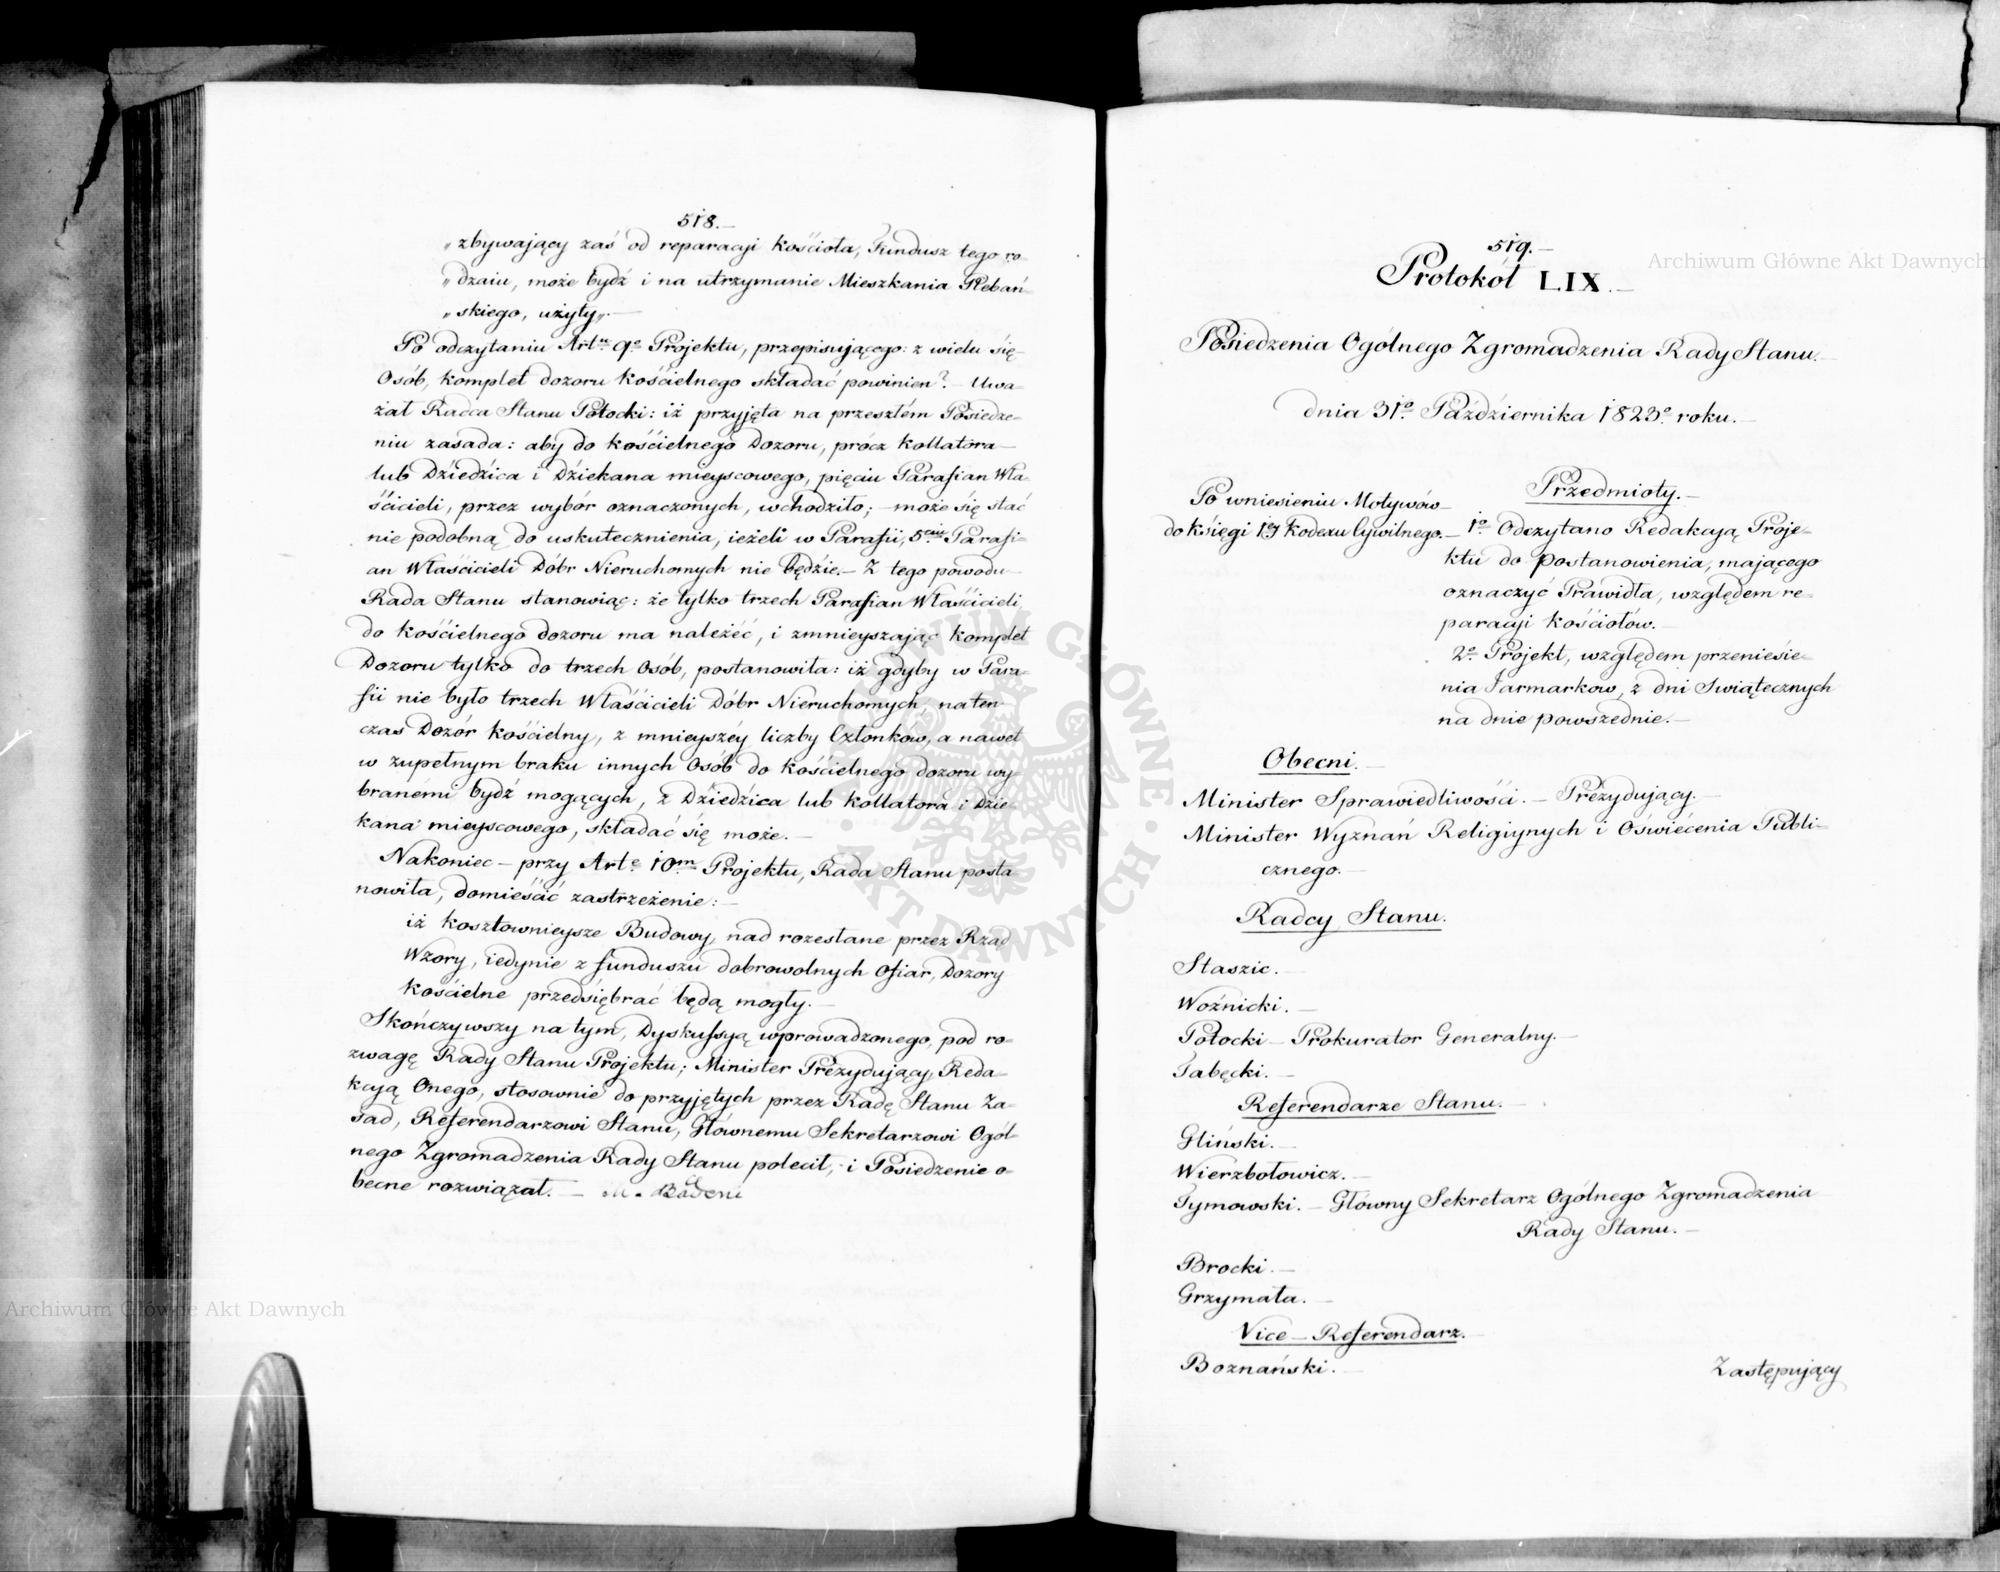 518.
„zbywający zaś od reparacyi kościoła, Fundusz tego ro=
„dzaiu, może bydź i na utrzymanie Mieszkania Plebań=
„skiego, użyty„.—
Po odczytaniu Artu 9o Projektu, przepisującego: z wielu się
Osób, komplet dozoru kościelnego składać powinien? — Uwa=
żał Radca Stanu Potocki: iż przyjęta na przeszłém Posiedze=
niu zasada: aby do kościelnego Dozoru, prócz kollatora
lub Dziedzica i Dziekana mieyscowego, pięciu Parafian Wła=
ścicieli, przez wybór oznaczonych, wchodziło; — może się stać
nie podobną do uskutecznienia, ieżeli w Parafii, 5ciu Parafi=
an Właścicieli Dóbr Nieruchomych nie będzie.— Z tego powodu
Rada Stanu stanowiąc: że tylko trzech Parafian Właścicieli,
do kościelnego dozoru ma należéć, i zmnieyszając komplet
Dozoru tylko do trzech Osób, postanowiła: iż gdyby w Para=
fii nie było trzech Właścicieli Dóbr Nieruchomych, naten=
czas Dozór kościelny, z mnieyszéy liczby Członków, a nawet
w zupełnym braku innych Osób do kościelnego dozoru wy=
branémi bydź mogących, z Dziedzica lub kollatora i Dzie=
kana mieyscowego, składać się może.—
Nakoniec — przy Arte 10m Projektu, Rada Stanu posta
nowiła, domieścić zastrzeżenie:—
iż kosztownieysze Budowy, nad rozesłane przez Rząd
Wzory, iedynie z funduszu dobrowolnych Ofiar, Dozory
kościelne przedsiębrać będą mogły.—
Skończywszy na tym, Dyskussyą wprowadzonego, pod ro=
zwagę Rady Stanu Projektu; Minister Prezydujący, Reda=
kcyą Onego, stosownie do przyjętych przez Radę Stanu Za=
sad, Referendarzowi Stanu, Głównemu Sekretarzowi Ogól=
nego Zgromadzenia Rady Stanu polecił, i Posiedzenie o=
becne rozwiązał. — M. Badeni
519.—
Protokół LIX.—
Posiedzenia Ogólnego Zgromadzenia Rady Stanu.—
dnia 31o Października 1823o roku.—
Po wniesieniu Motywów
do księgi 1éy kodexu Cywilnego.—
Przedmioty.—
1o Odczytano Redakcyą Proje=
ktu do Postanowienia, mającego
oznaczyć Prawidła, względem re=
paracyi kościołów.—
2o Projekt, względem przeniesie=
nia Jarmarkow, z dni Swiątecznych
na dnie powszednie.—
Obecni.—
Minister Sprawiedliwości.— Prezydujący.—
Minister Wyznań Religiynych i Oświécenia Publi=
cznego.—
Radcy Stanu.
Staszic.—
Woźnicki.—
Potocki — Prokurator Generalny.—
Tabęcki.—
Referendarze Stanu.—
Gliński.—
Wierzbołowicz.—
Tymowski.— Główny Sekretarz Ogólnego Zgromadzenia
Rady Stanu.—
Brocki.—
Grzymała.—
Vice — Referendarz.—
Boznański.—
Zastępujący
Archiwum Główne Akt Dawnych
Archiwum Główne Akt Dawnych
ARCHIWUM GŁÓWNE · AKT DAWNYCH ·